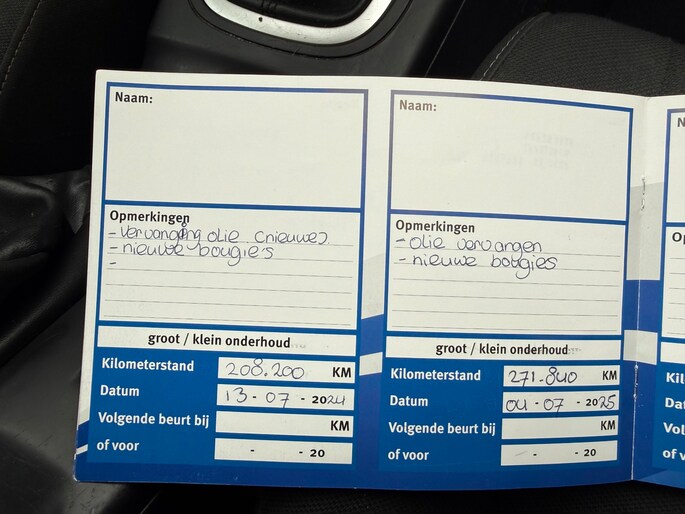 Naam:
Opmerkingen
- Vervanging olie (nieuwe).
- nieuwe bougies
-
groot / klein onderhoud
Kilometerstand 208.200 KM
Datum 13 - 07 - 2024
Volgende beurt bij KM
of voor - - 20
Naam:
Opmerkingen
- olie vervangen
- nieuwe bougies
groot / klein onderhoud
Kilometerstand 271.840 KM
Datum 04 - 07 - 2025
Volgende beurt bij KM
of voor - - 20